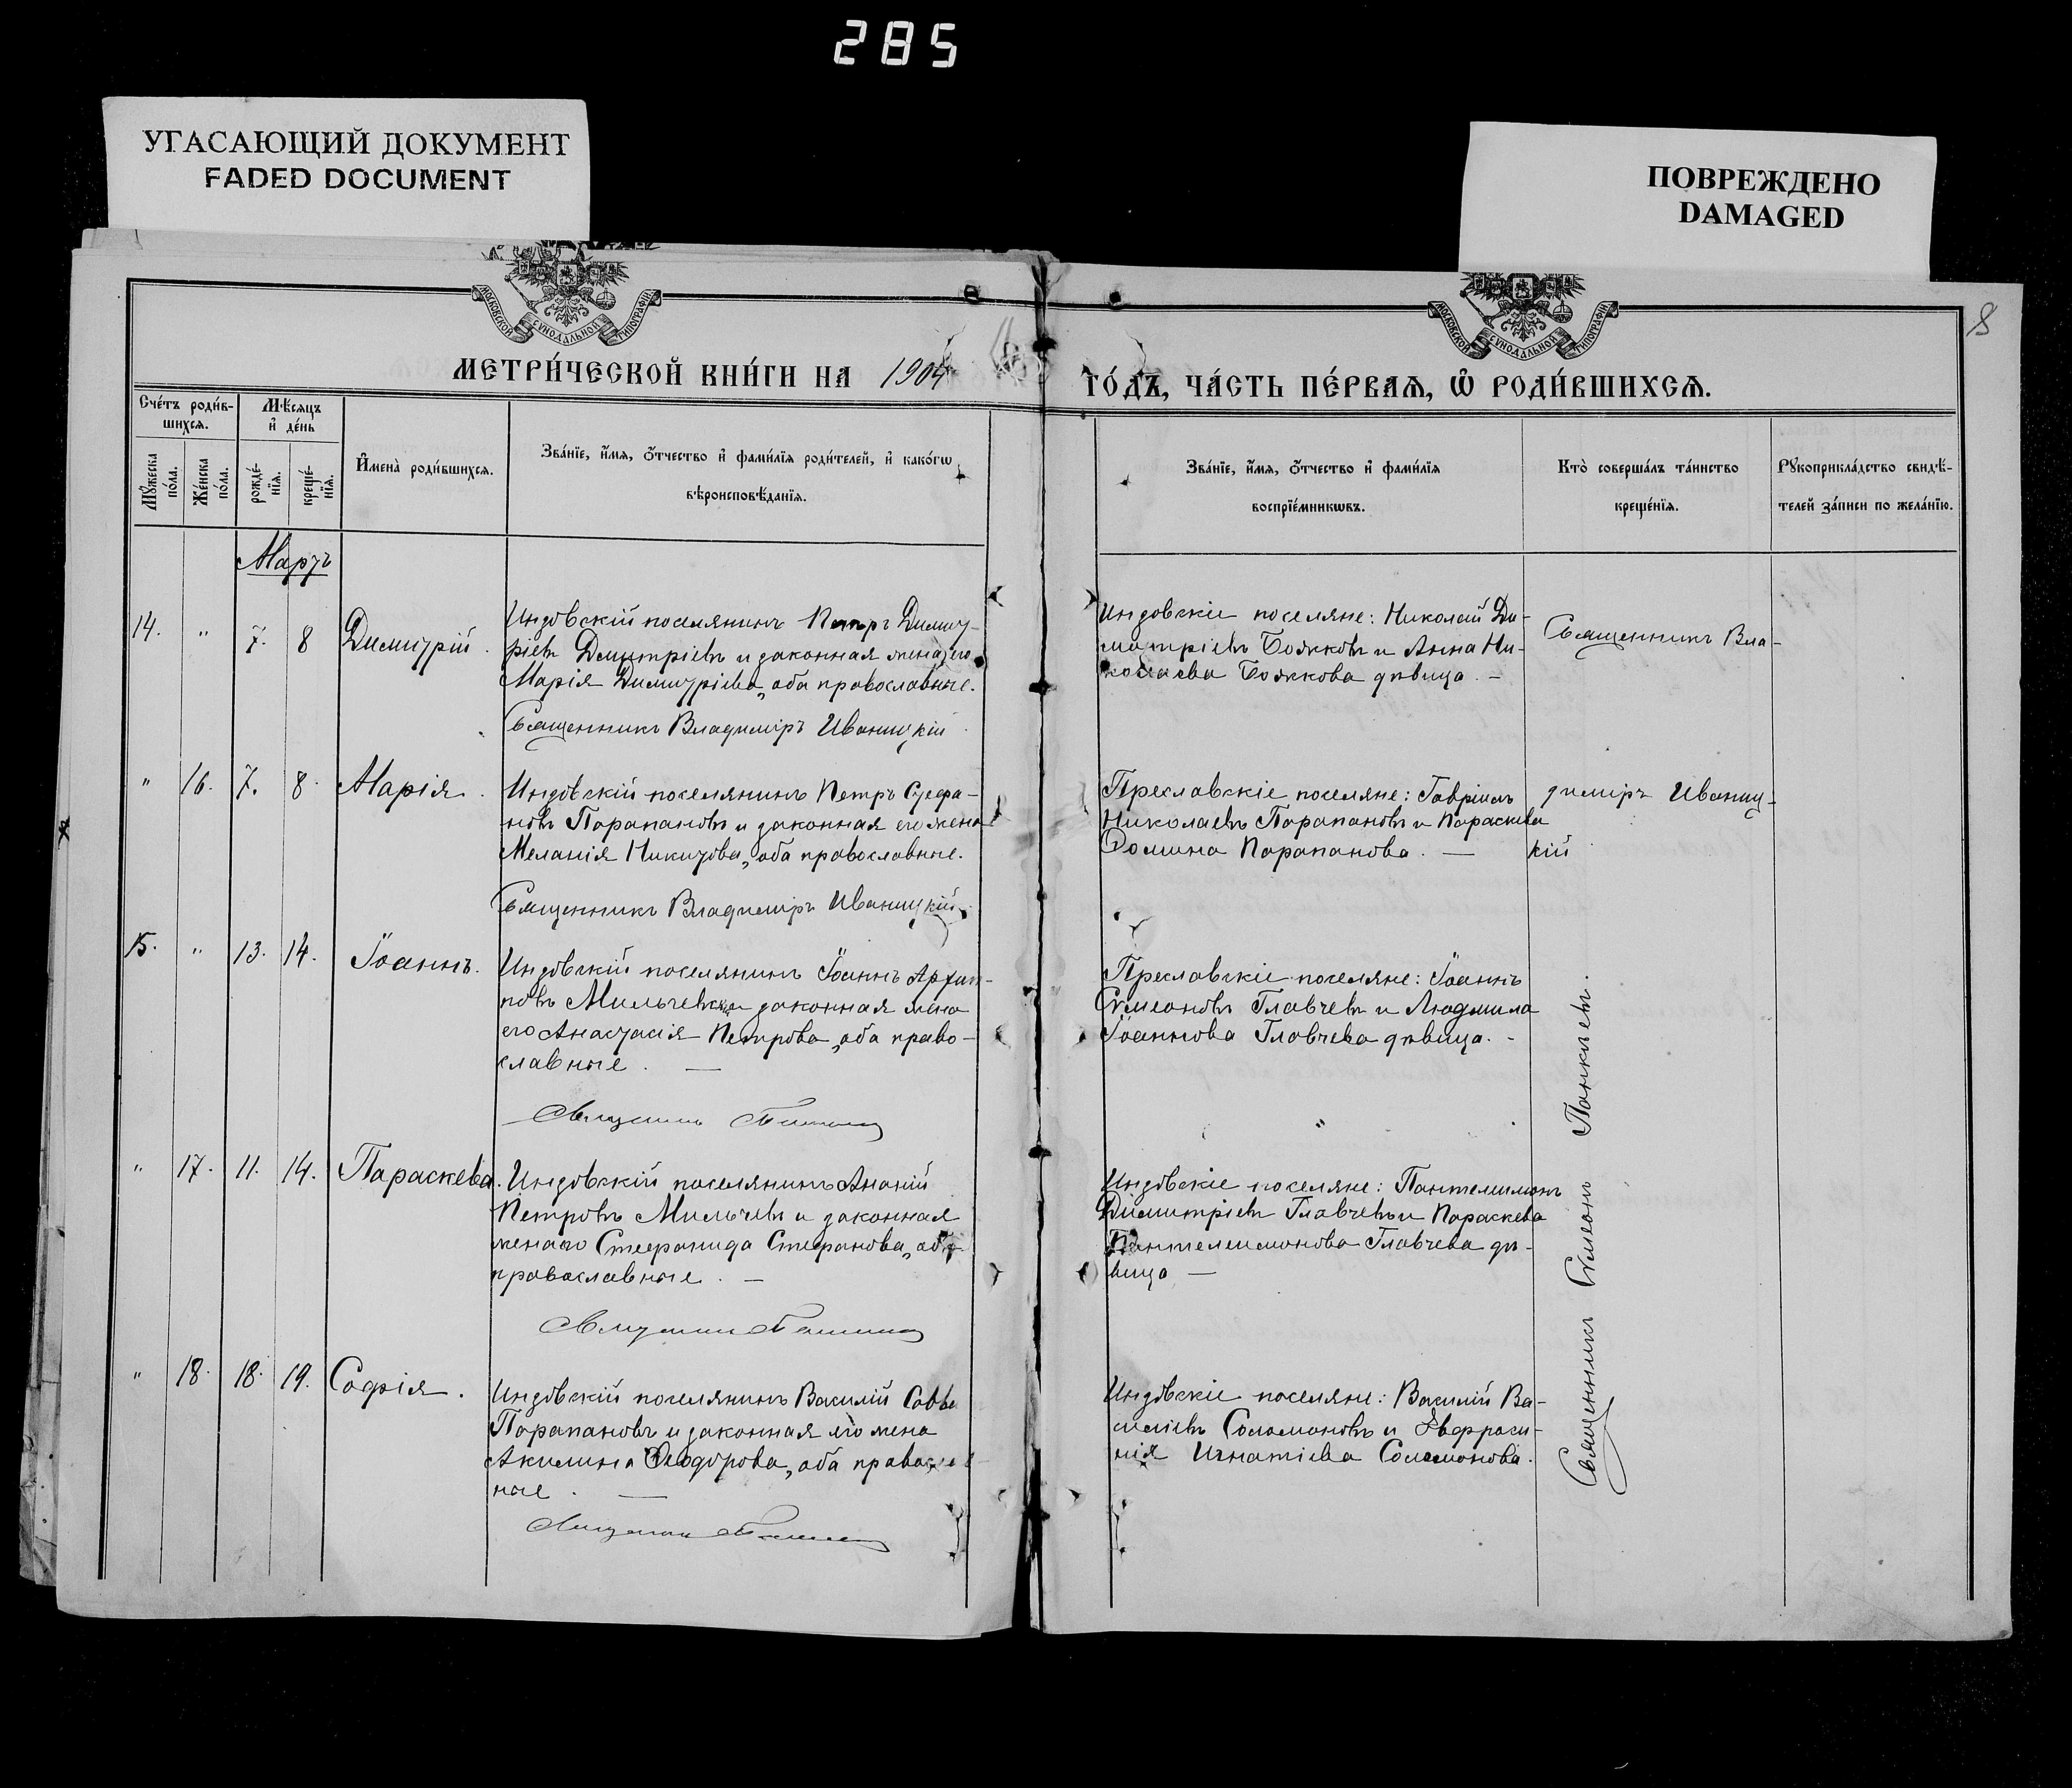 285
УГАСАЮЩИЙ ДОКУМЕНТ
FADED DOCUMENT
ПОВРЕЖДЕНО
DAMAGED
МОСКОВСКОЙ СУНОДАЛЬНОЙ ТИПОГРАФІИ
МОСКОВСКОЙ СУНОДАЛЬНОЙ ТИПОГРАФІИ
8
МЕТРИ́ЧЕСКОЙ КНИ́ГИ НА 1904
ГО́ДЪ, ЧА́СТЬ ПЕ́РВАѦ, Ѡ҆ РОДИ́ВШИХСѦ.
Сче́тъ роди́в-
шихсѧ.
Мѣ́сѧцъ
и҆ де́нь
Мꙋ́жеска
по́ла.
Же́нска
по́ла.
рожде́-
нїѧ.
креще́-
нїѧ.
И҆мена̀ роди́вшихсѧ.
Зва́нїе, и҆́мѧ, о҆́тчество и҆ фами́лїѧ роди́телей, и҆ како́гѡ
вѣроисповѣ́данїѧ.
Зва́нїе, и҆́мѧ, о҆́тчество и҆ фами́лїѧ
воспрїе́мникѡвъ.
Кто̀ соверша́лъ та́инство
креще́нїѧ.
Рꙋкоприкла́дство свидѣ́-
телей за́писи по жела́нїю.
Мартъ
14. " 7. 8 Димитрій.
Индовскій поселянинъ Петръ Димит-
ріевъ Димитріевъ и законная жена его
Марія Димитріева, оба православные.
Священникъ Владиміръ Иваницкій
Индовскіе поселяне: Николай Ди-
митріевъ Божковъ и Анна Ни-
колаева Божкова дѣвица. —
Священникъ Вла-
" 16. 7. 8. Марія.
Индовскій поселянинъ Петръ Стефа-
новъ Парапановъ и законная его жена
Меланія Никитова, оба православные.
Священникъ Владиміръ Иваницкій.
Преславскіе поселяне: Гавріилъ
Николаевъ Парапановъ и Параскева
Домина Парапанова. —
диміръ Иваниц-
кій
15. " 13. 14. Іоаннъ.
Индовскій поселянинъ Іоаннъ
Мильчевъ и законная жена
его Анастасія Петрова, оба право-
славные. —
Священникъ
Преславскіе поселяне: Іоаннъ
Сѵмеоновъ Главчевъ и Людмила
Іоаннова Главчева дѣвица. -
" 17. 11. 14. Параскева.
Индовскій поселянинъ Ананій
Петровъ Мильчевъ и законная
жена его Стефанида Стефанова, оба
православные. —
Священникъ
Индовскіе поселяне: Пантелимонъ
Димитріевъ Главчевъ и Параскева
Пантелеимонова Главчева дѣ-
вица —
" 18. 18. 19. Софія.
Индовскій поселянинъ Василій Савы
Парапановъ и законная его жена
Акилина Ѳеодорова, оба православ-
ные. —
Священникъ
Индовскіе поселяне: Василій Ва-
силіевъ Соломоновъ и Евфроси-
нія Игнатіева Соломонова.
Священникъ Сѵмеонъ